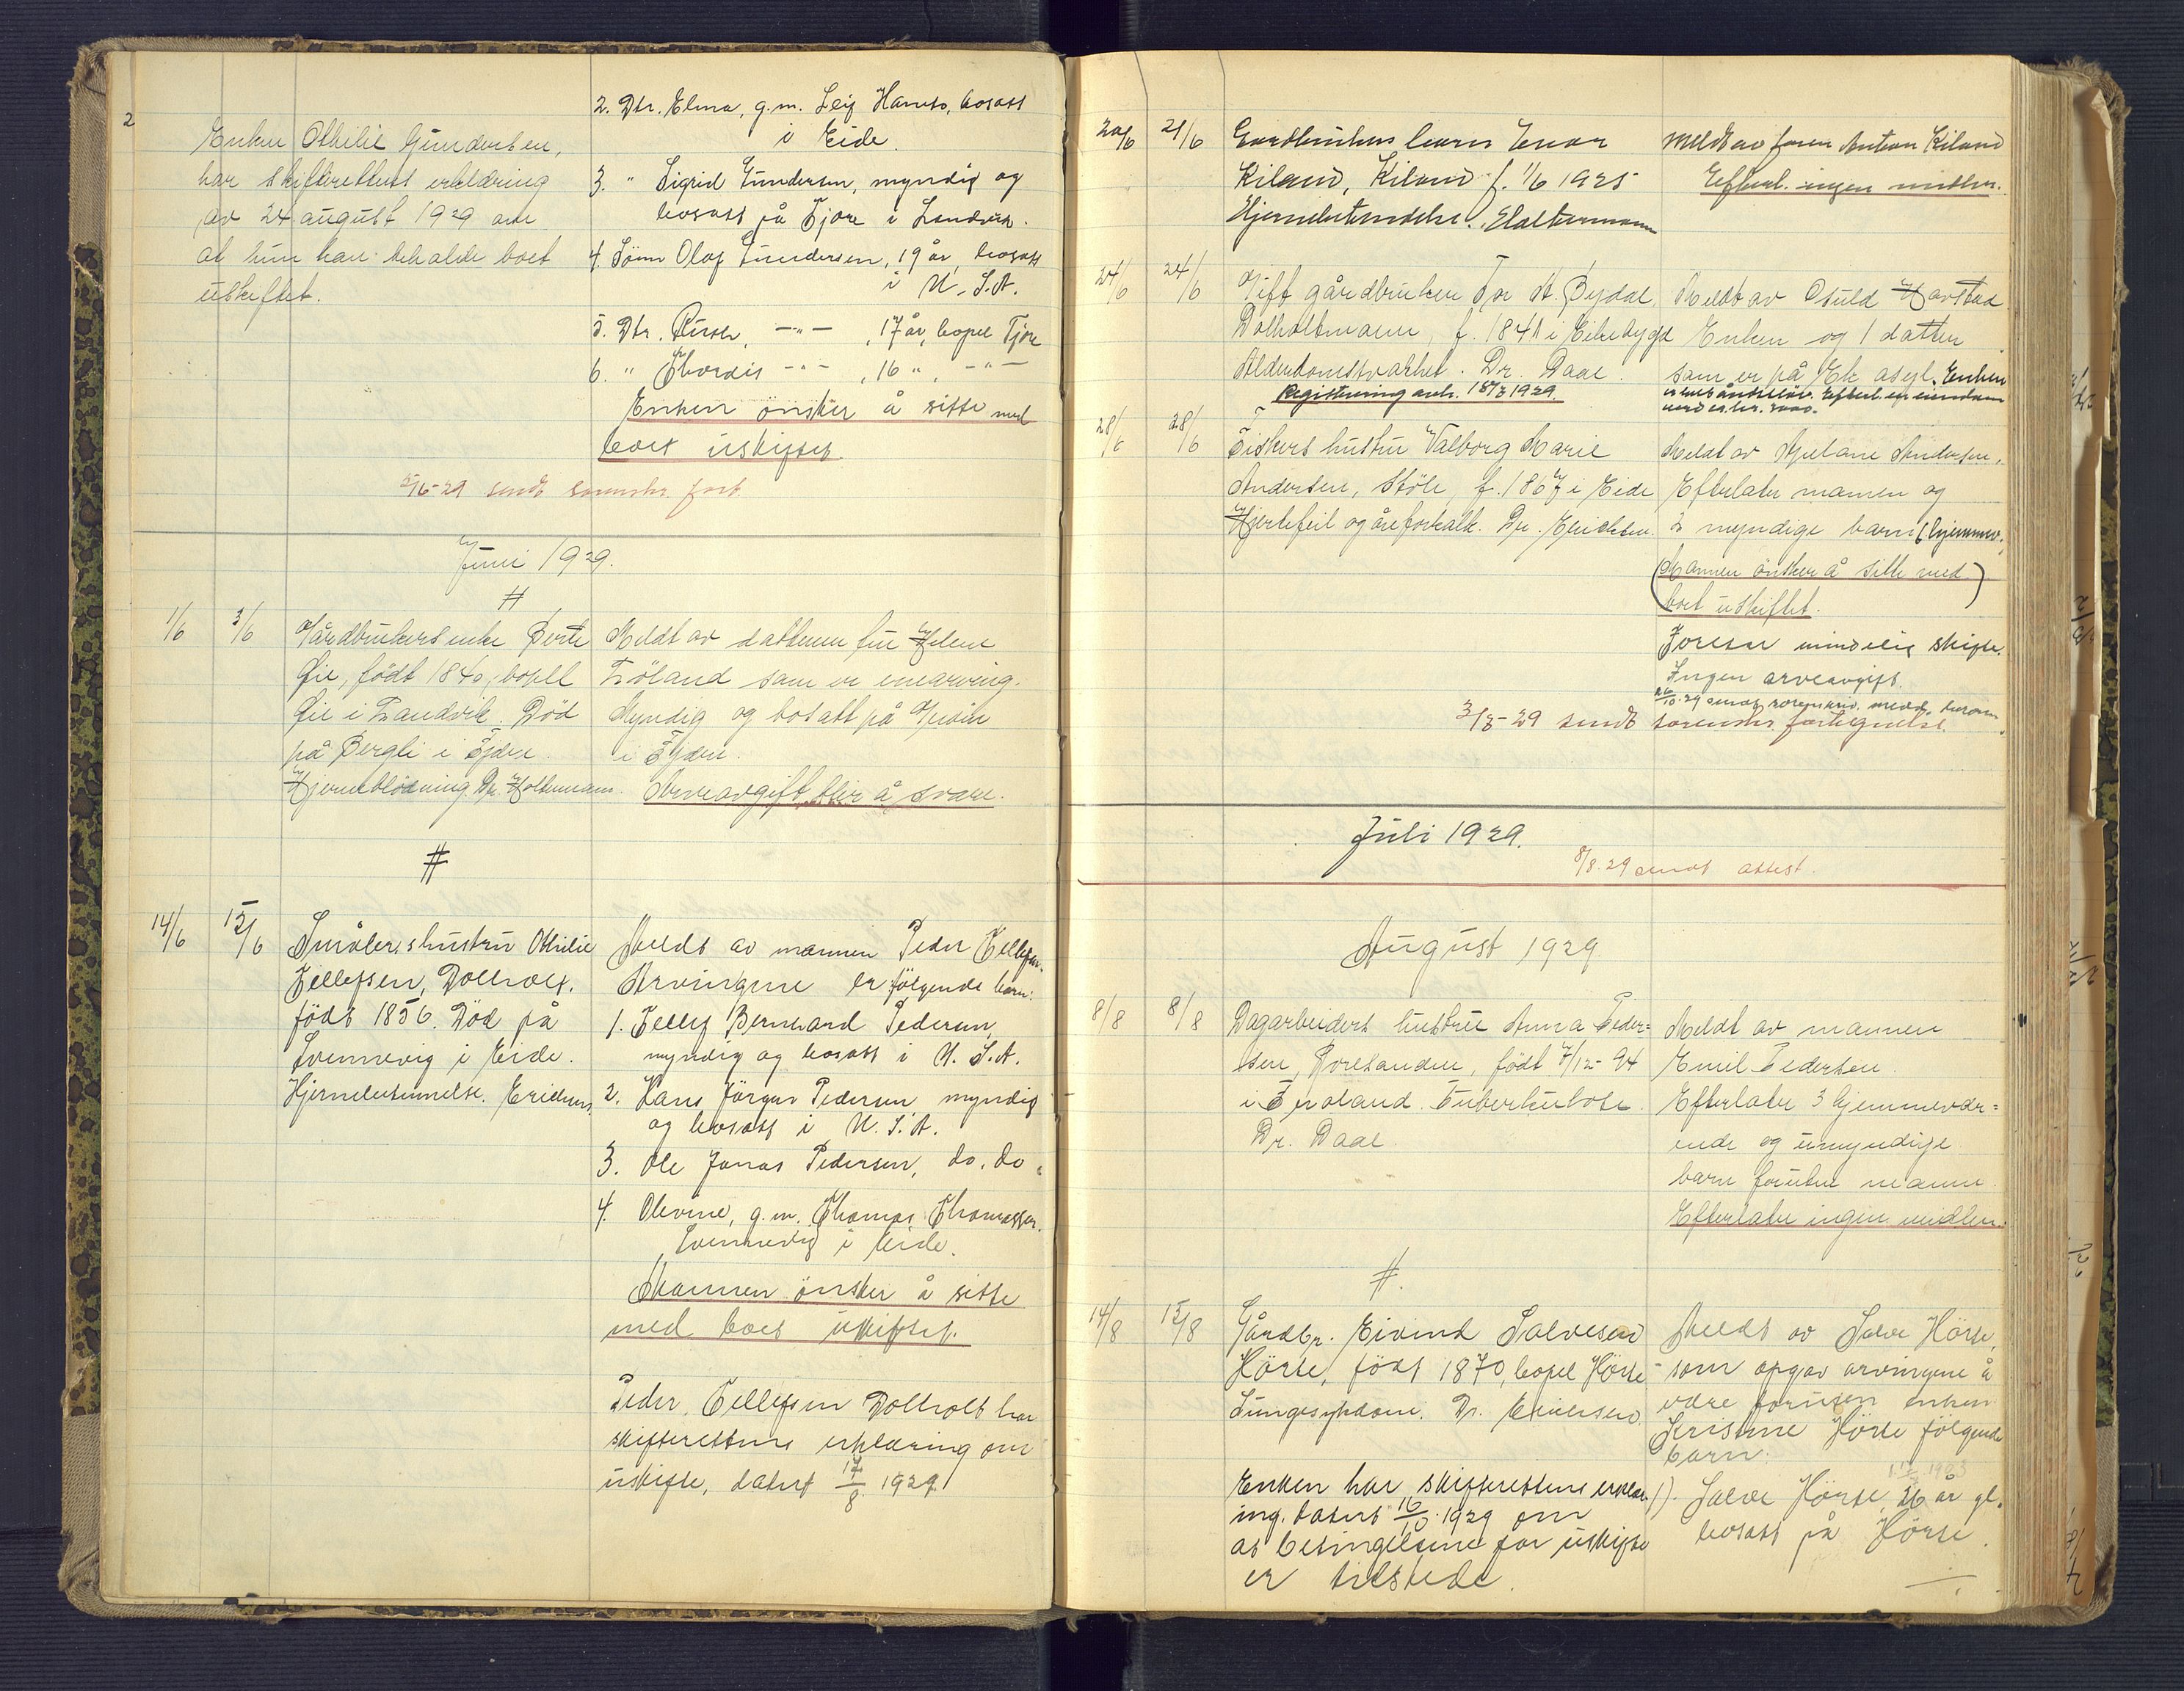 2
Enken Othilie Gundersen,
har skifterettens erklæring
av 24 august 1929 om
at hun kan beholde boet
uskiftet.
2. Dtr. Elma, g.m. Leif Hamto, bosatt
i Eide.
3. " Sigrid Gundersen, myndig og
bosatt på Fjære i Landvik.
4. Sønn Olaf Gundersen, 19 år, bosatt
i U.S.A.
5. Dtr. Ruth, —"— , 17 år, bopel Tjore
6. " Thordis -"- , 16 ", -"-
Enken ønsker å sitte med
boet uskiftet.
sendt sorenskr. fort.
Juni 1929.
#
1/6 3/6 Gårdbrukers enke Berte
Øie, født 1840, bopel
Øie i Landvik. Død
på Bergli i Fjære.
Hjerneblødning. Dr. Holtermann.
Meldt av datteren fru Helene
Løland som er enearving.
Myndig og bosatt på
i Fjære.
Arveavgift blir å svare.
#
14/6 15/6 Småbr.s hustru Othilie
Tellefsen, Dolholt.
født 1856. Død på
Svennevig i Eide.
Hjernebetennelse. Erichsen.
Meldt av mannen Peder Tellefsen.
Arvingene er følgende barn:
1. Tellef Bernhard Pedersen,
myndig og bosatt i U.S.A.
2. Hans Jørgen Pedersen myndig
og bosatt i U.S.A.
3. Ole Jonas Pedersen, do. do.
4. Olevine, g.m. Thomas Thomassen.
Svennevig i Eide.
Mannen ønsker å sitte
med boet uskiftet.
Peder Tellefsen Dolholt har
skifterettens erklæring om
uskifte, datert 17/8 1929.
20/6 21/6 Gardbrukers barn
Kiland, Kiland f. 1/6 1925
Hjernebetendelse. Holtermann
Meldt av faren Anton Kiland
Efterl. ingen midler.
24/6 24/6 Gift gårdbruker Tor A. Bydal,
Dolholtmoen, f. 1841 i Eikebygd
Alderdomssvakhet. Dr. Daae.
Registrering avh. 18/7 1929.
Meldt av Osuld Harstad
Enken og 1 datter
som er på Ek asyl. Enken
er åndssløv. Efterl. en eiendom
verd ca. kr.
28/6 28/6 Fiskers hustru Valborg Marie
Andersen, Støle, f. 1867 i Eide
Hjertefeil og åreforkalk. Dr. Erichsen
Meldt av Andersen.
Efterlater mannen og
2 myndige barn (hjemmev.
(Mannen ønsker å sitte med)
boet uskiftet.
Foretar mindelig skifte.
Ingen arveavgift.
26/10-29 sendt sorenskriv. medd. herom
3/8-29 sendt sorenskr. fortegnelse.
Juli 1929.
8/8.29 sendt attest.
August 1929
8/8 8/8 Dagarbeiders hustru Anna Peder=
sen, Roresanden, født 7/12-94
i Froland. Tuberkulose.
Dr. Daae.
Meldt av mannen
Emil Pedersen.
Efterlater 3 hjemmevær=
ende og umyndige
barn foruten mannen.
Efterlater ingen midler.
#.
14/8 15/8 Gårdbr. Eivind Salvesen
Hørte, født 1870, bopel Hørte
Lungesykdom. Dr. Erichsen
Meldt av Salve Hørte,
som opgav arvingene å
være foruten enken
Kristine Hørte følgende
barn:
1). Salve Hørte, 26 år gl.
bosatt på Hørte.
Enken har skifterettens erklær
ing. datert 16/10 1929 om
at betingelsene for uskifte
er tilstede.